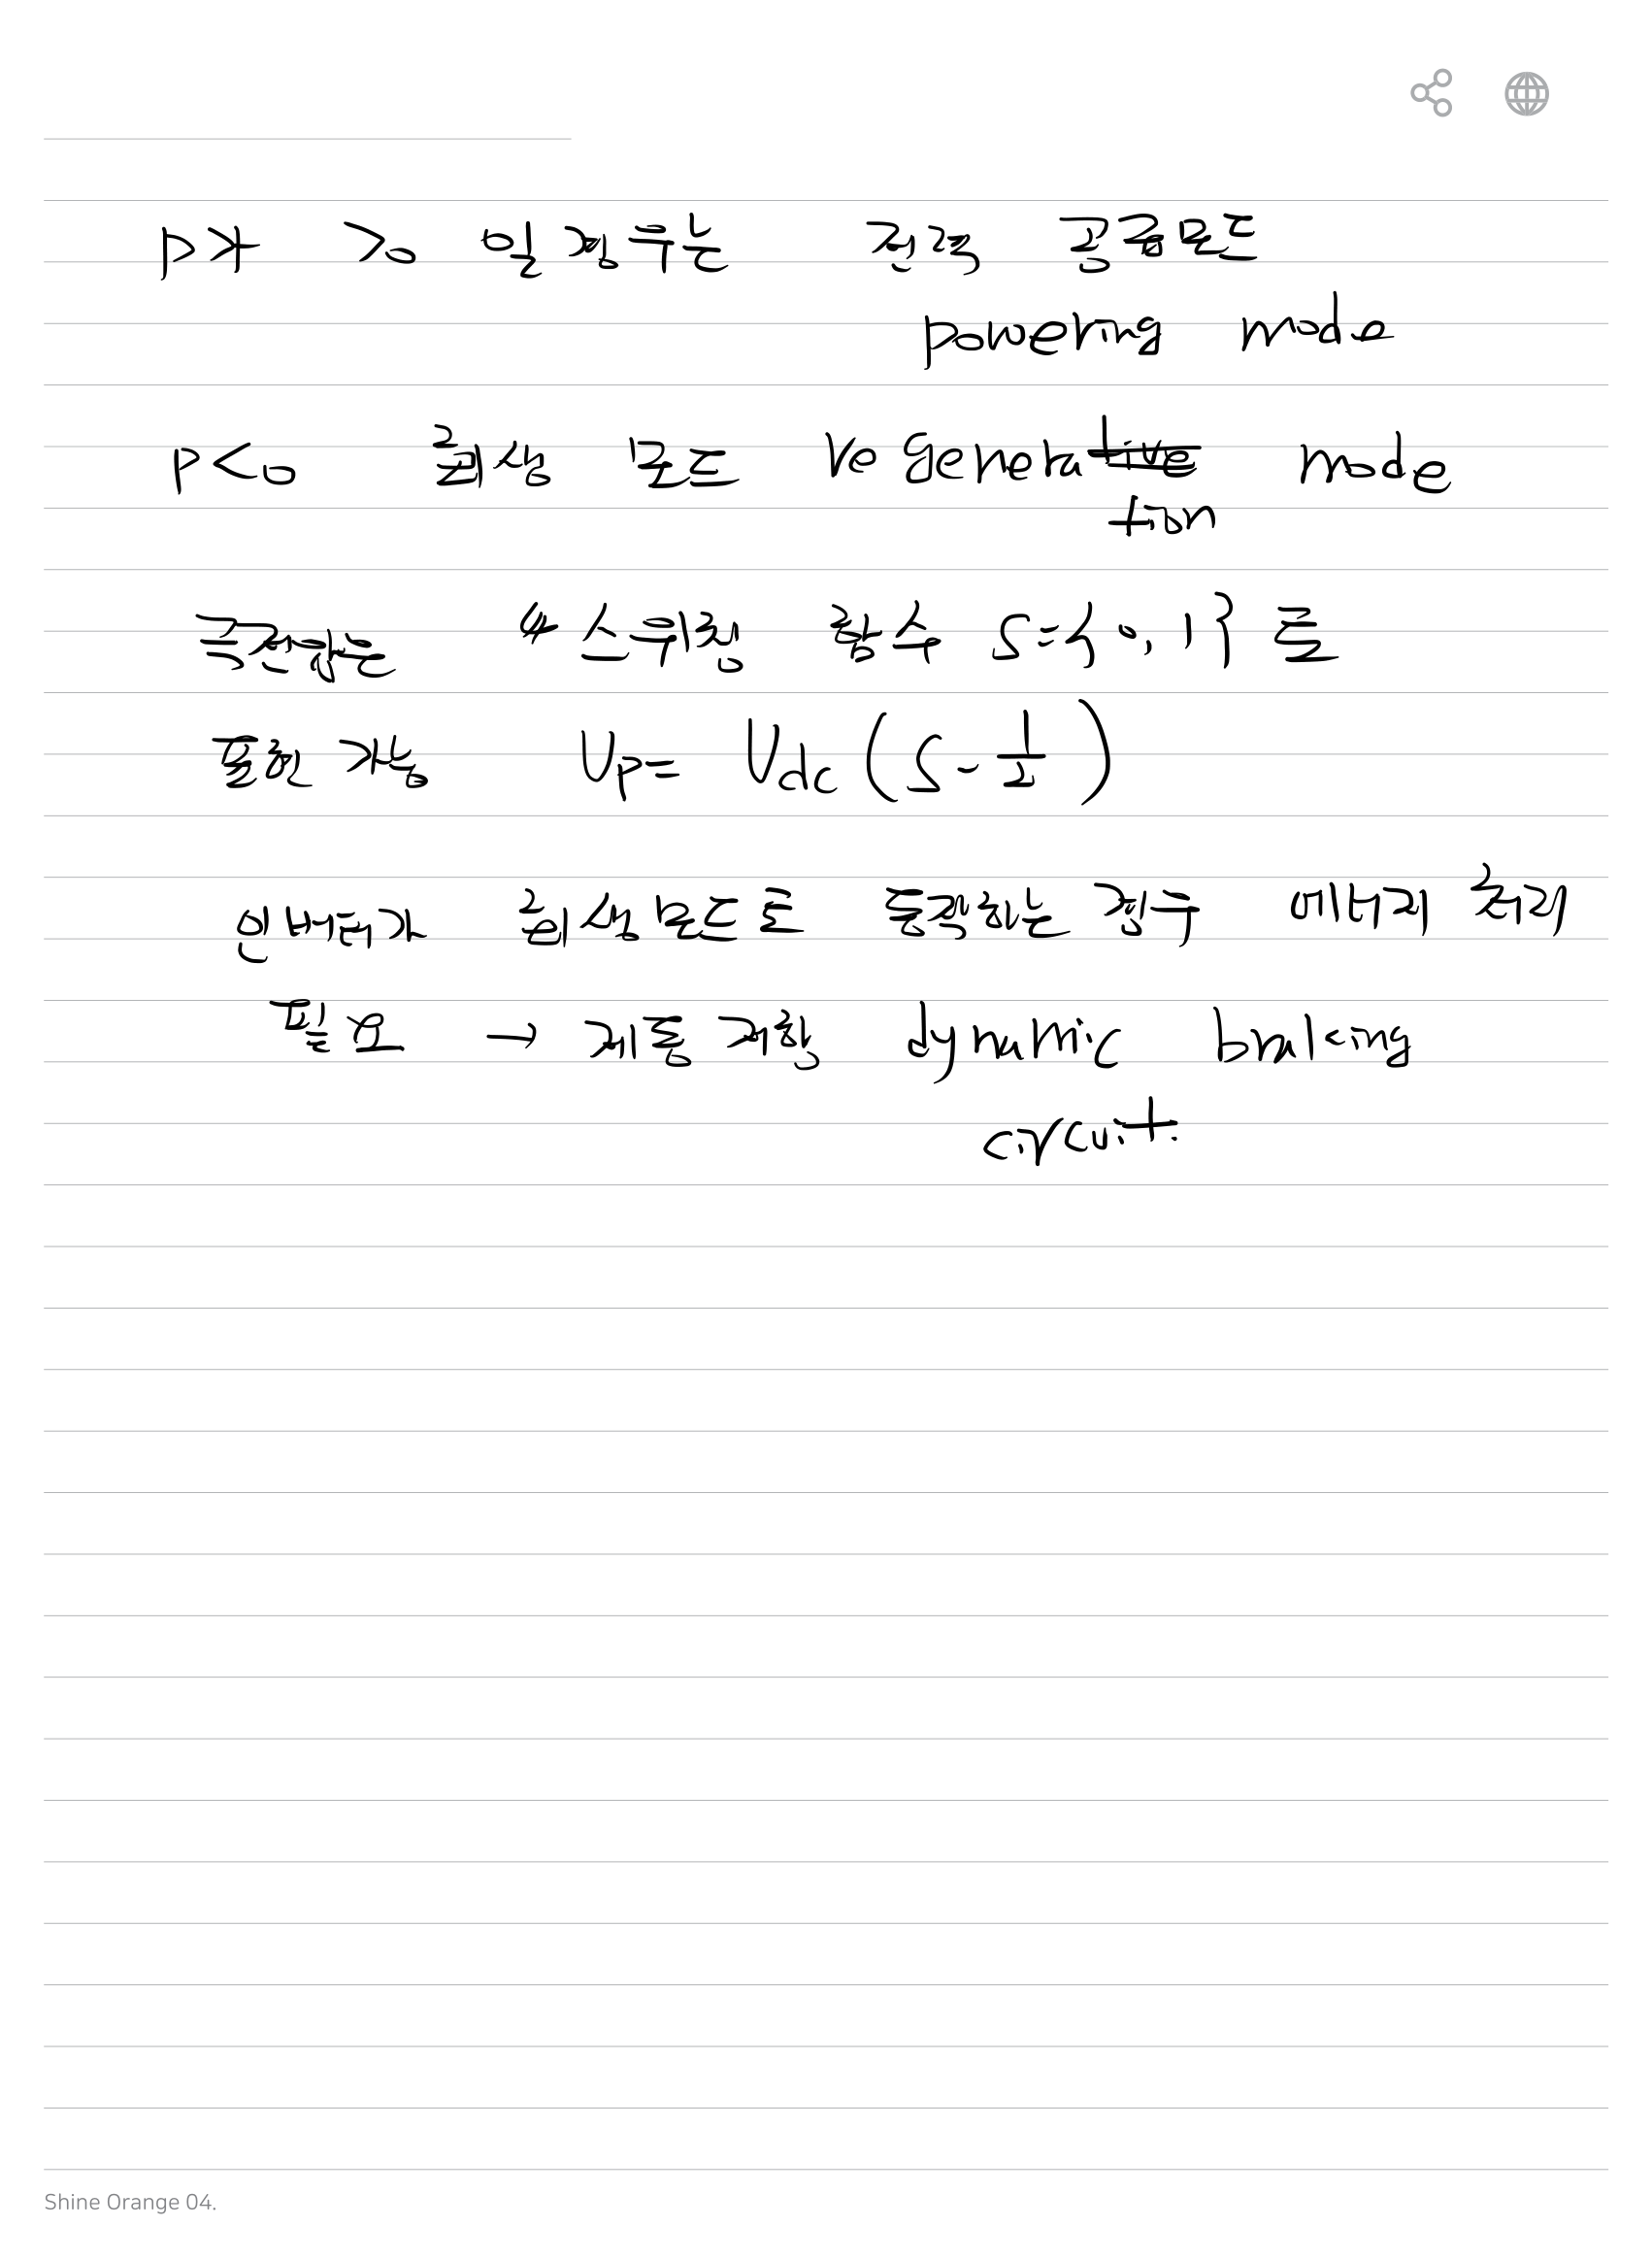 P가 >0 일 경우는 전력 공급모드
powering mode
P<0 회생 모드 regeneration mode
극전압은 스위칭 함수 S={0,1}로
표현 가능 Vp= Vdc(S-1/2)
인버터가 회생모드로 동작하는 경우 에너지 처리
필요 → 제동 저항 dynamic braking
circuit.
Shine Orange 04.